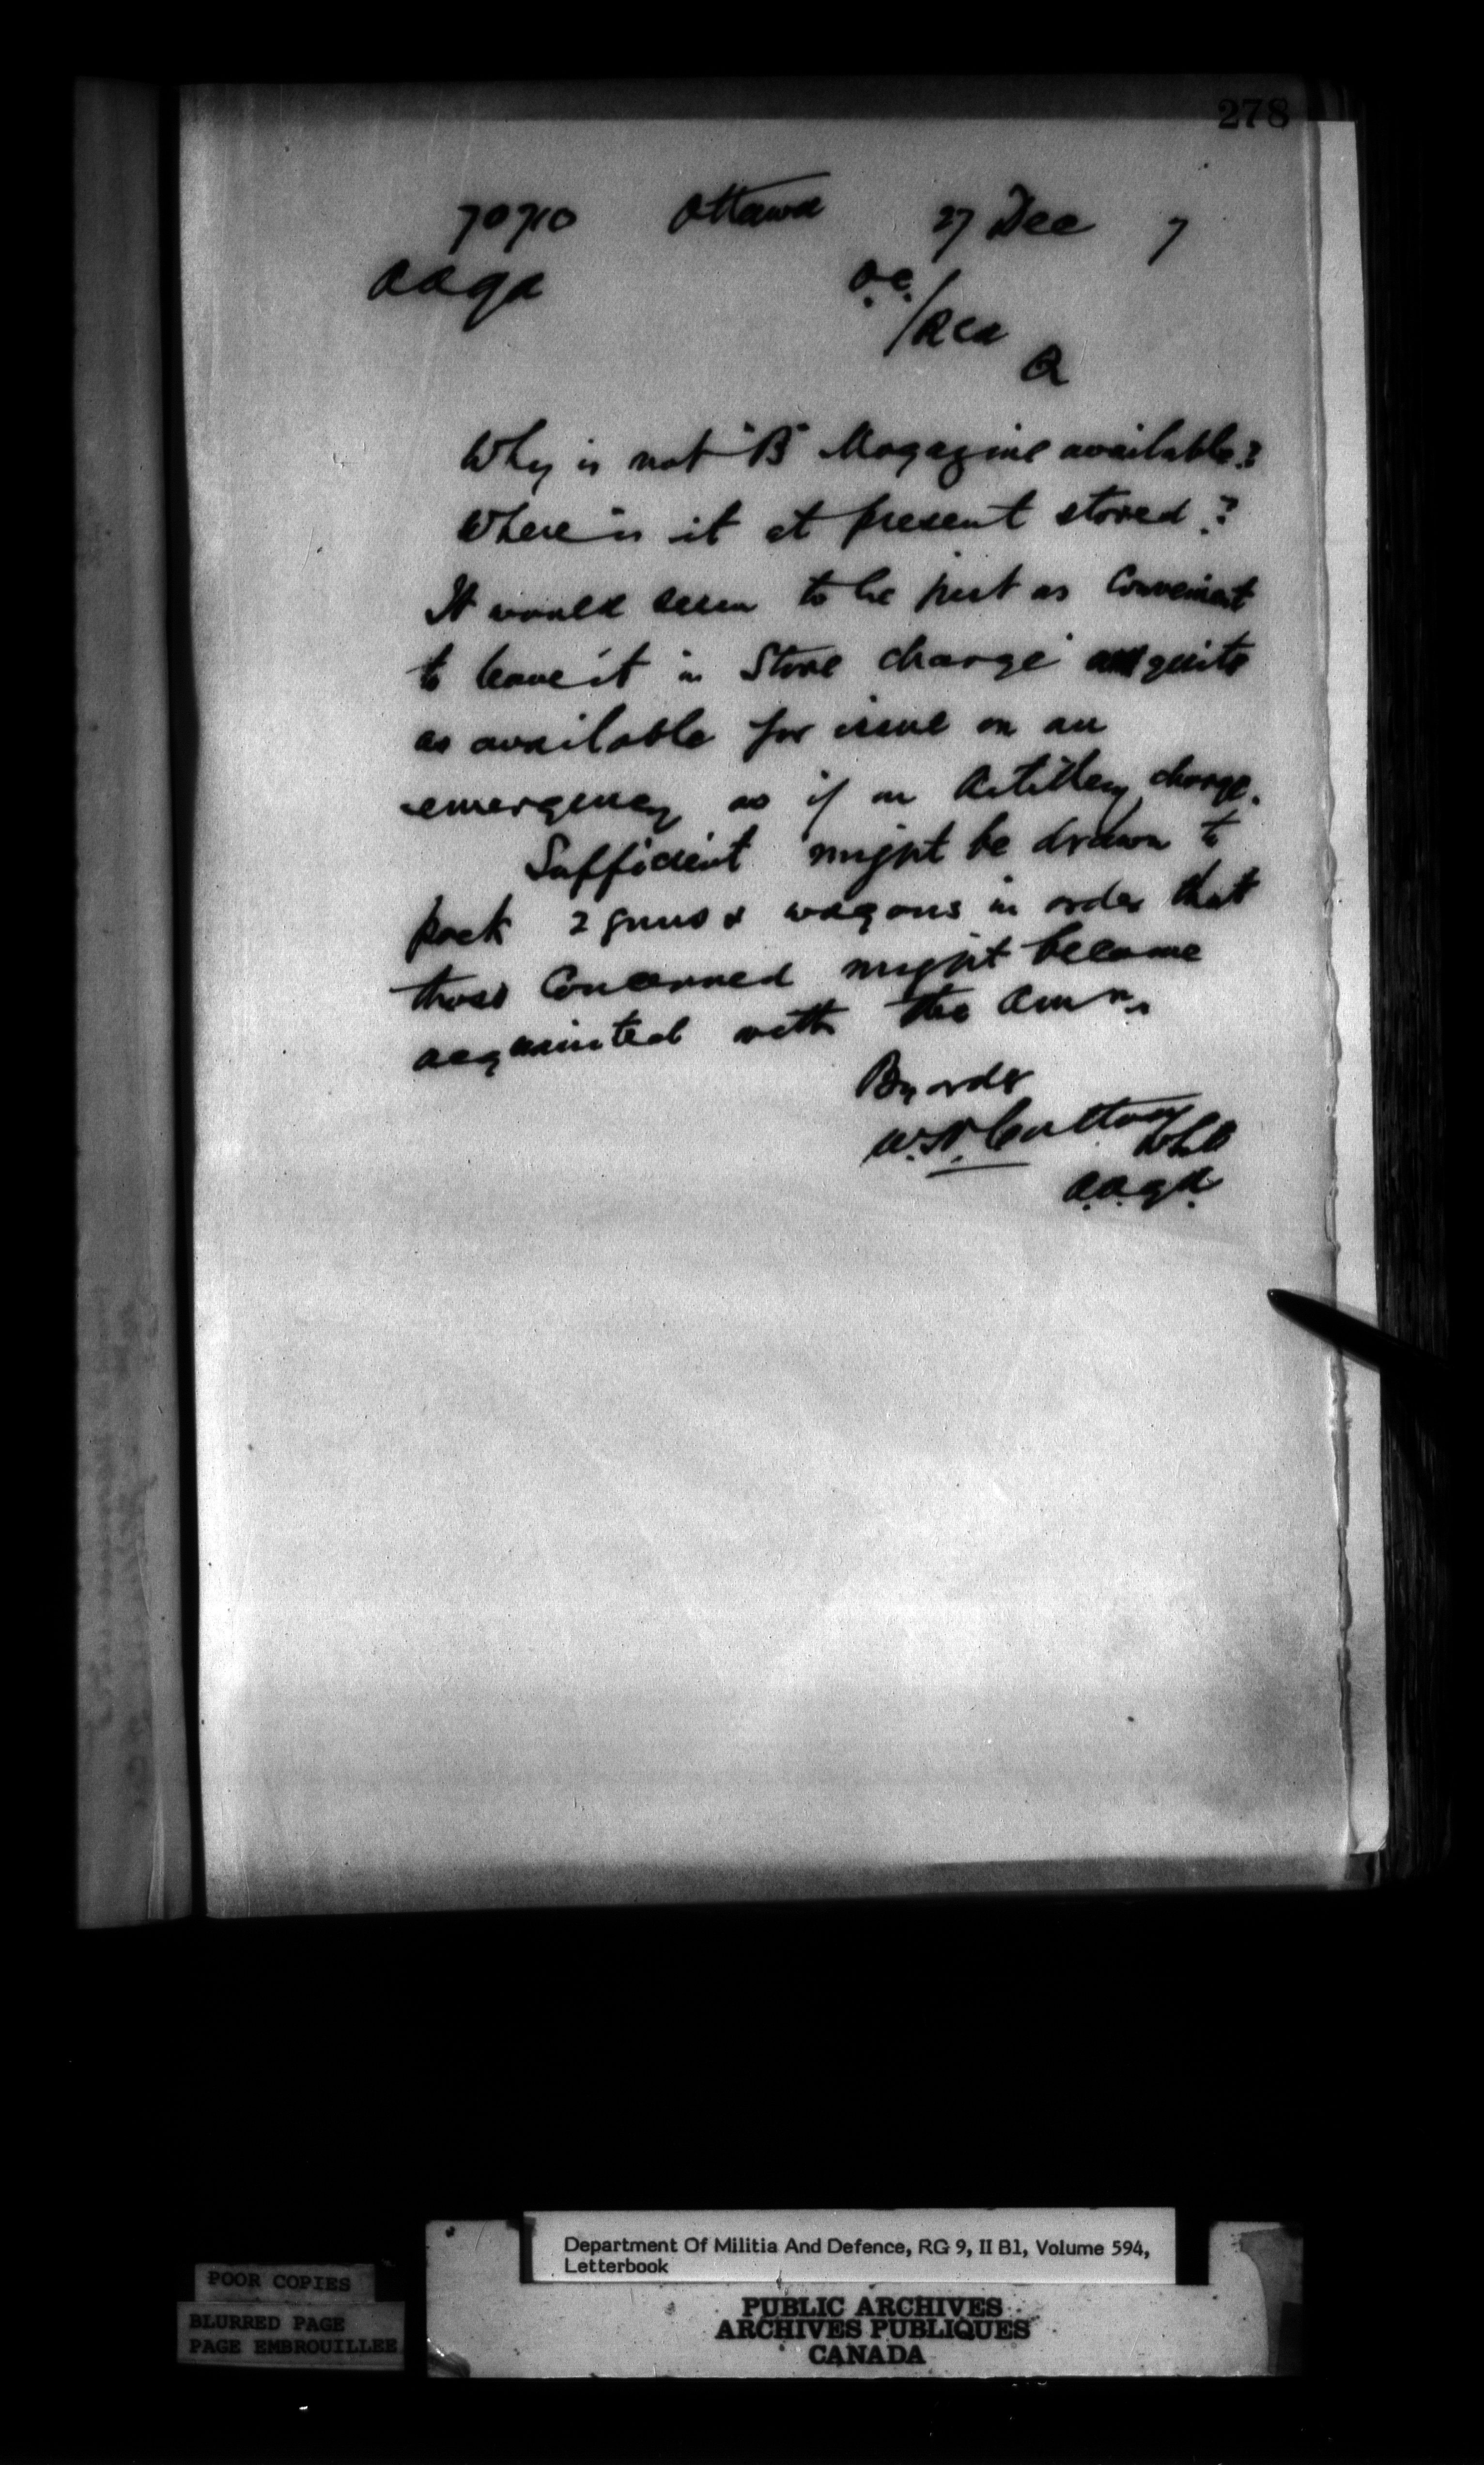 278
70710 Ottawa 27 Dec 7
AAGA
O.C.
/RCA
Q
Why is not "B" Magazine available?
Where is it at present stored?
It would seem to be just as convenient
to leave it in Store charge quite
as available for issue on an
emergency as if on Artillery charge.
Sufficient might be drawn to
pack 2 guns & wagons in order that
those concerned might become
acquainted with the Ammn.
By order
W.
A.A.G.A.
Department Of Militia And Defence, RG 9, II B1, Volume 594,
Letterbook
POOR COPIES
BLURRED PAGE
PAGE EMBROUILLEE
PUBLIC ARCHIVES
ARCHIVES PUBLIQUES
CANADA